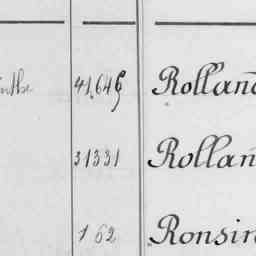 41.646 Rolland
31331 Rollan
162 Ronsin